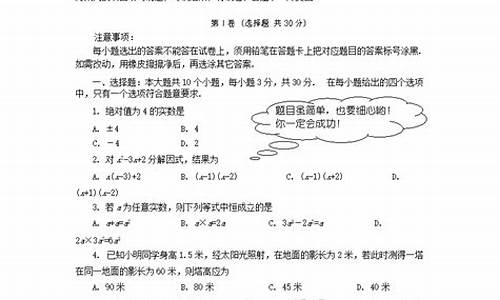 第Ⅰ卷 (选择题 共30分)
注意事项:
每小题选出的答案不能答在试卷上, 须用铅笔在答题卡上把对应题目的答案标号涂黑.
如需改动, 用橡皮擦擦净后, 再选涂其它答案.
一、选择题: 本大题共10个小题, 每小题3分, 共30分. 在每小题给出的四个选
项中, 只有一个选项符合题意要求.
题目虽简单, 也要细心哟!
你一定会成功!
1. 绝对值为4的实数是
A. ±4 B. 4
C. -4 D. 2
2. 对x²-3x+2分解因式, 结果为
A. x(x-3)+2 B. (x-1)(x-2) C. (x-1)(x+2) D.
(x+1)(x-2)
3. 若a为任意实数, 则下列等式中恒成立的是
A. a+a=a² B. a×a=2a C. 3a³-2a²=a D.
2a×3a²=6a³
4. 已知小明同学身高1.5米, 经太阳光照射, 在地面的影长为2米, 若此时测得一塔
在同一地面的影长为60米, 则塔高应为
A. 90米 B. 80米 C. 45米 D. 40米